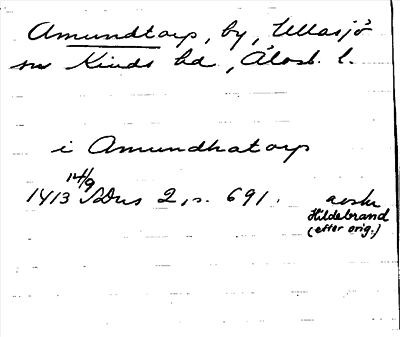 Amundtorp, by, Ullasjö
sn Kinds hd, Älvsb. l.
i Amundhatorp
14/9
1413 SDns 2, s. 691. avskr
Hildebrand
(efter orig.)